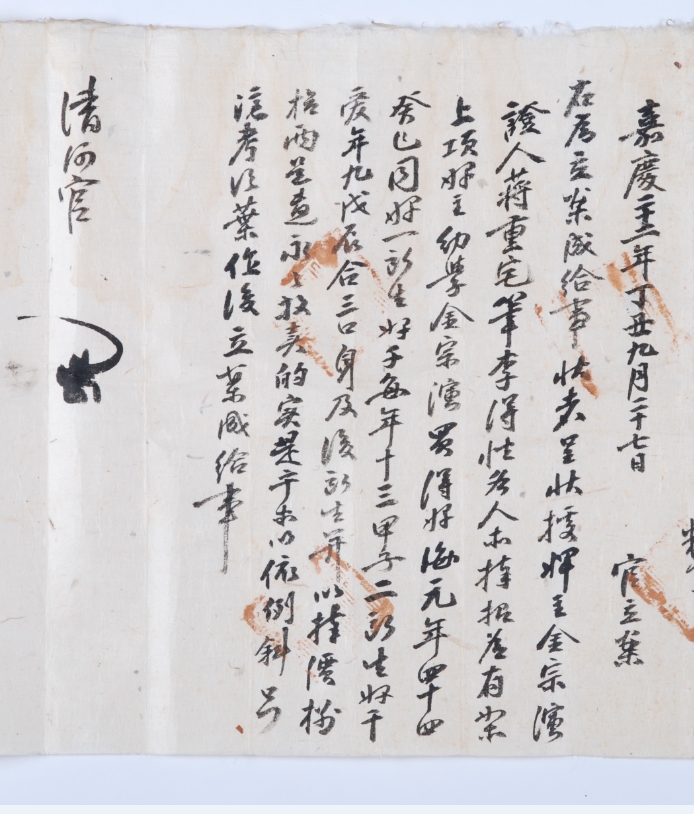 嘉慶二十二年丁丑九月二十七日 官立案
右爲立案成給事狀者呈狀據婢主金宗演
證人蔣重宅筆李得 各人 捧招爲有 
上項婢主幼學金宗演買得婢海元年四十四
癸巳同婢一所生婢子每年十三甲子二所生婢干
愛年九戊辰合三口身及後所生幷以捧價
 兩是遣永永放賣的實是乎 以依例斜只
 立案成給事
清河官